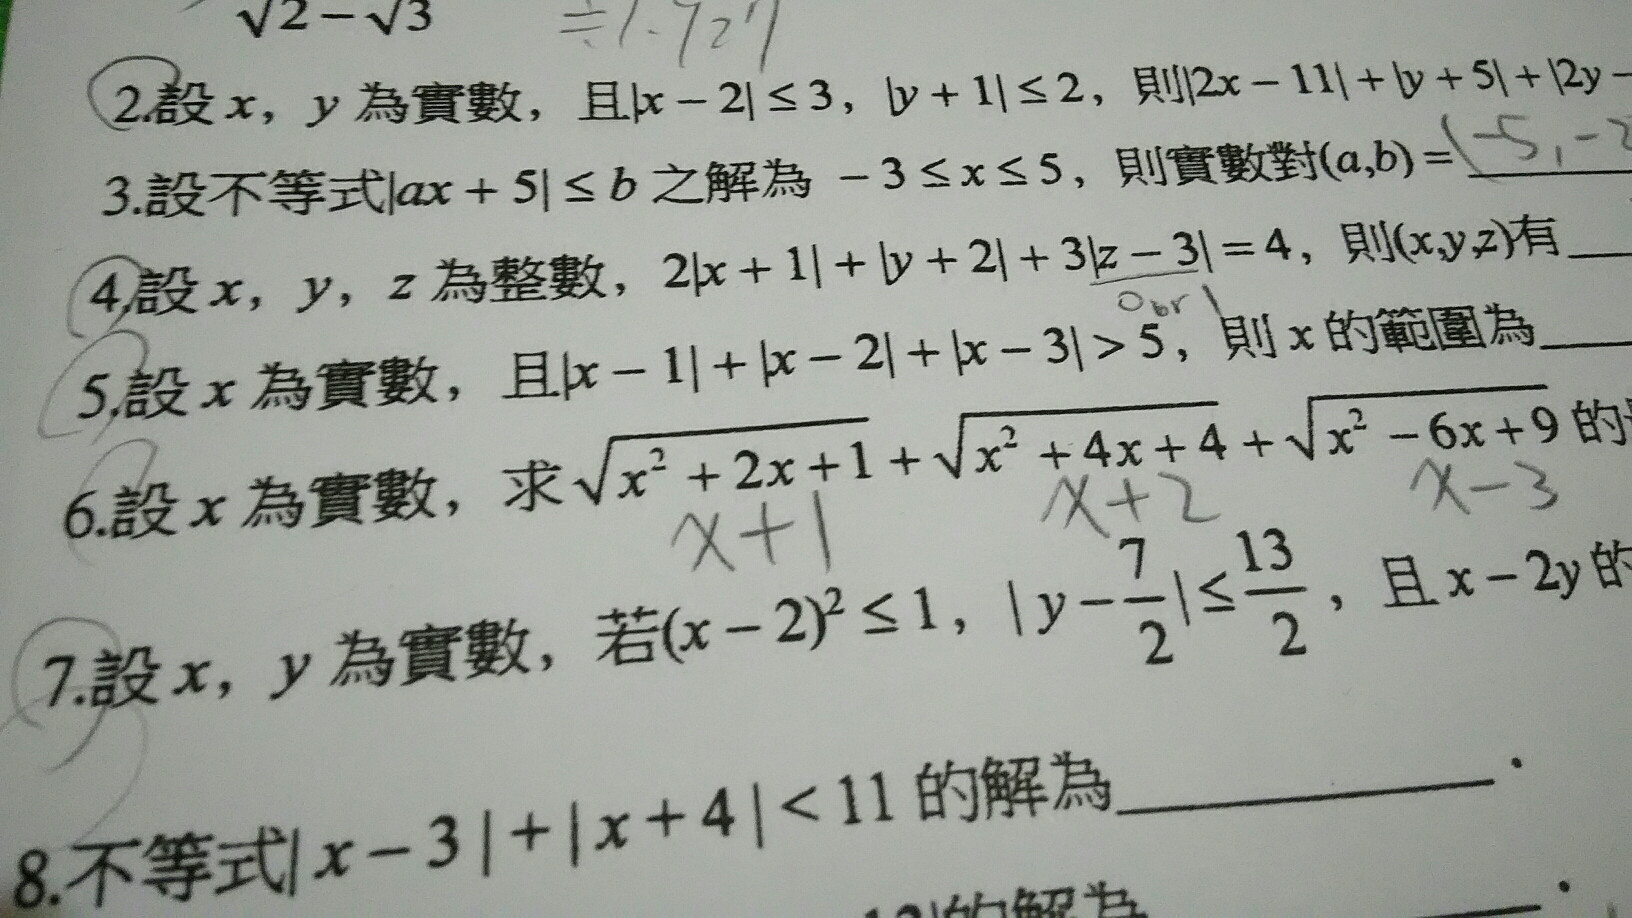 √2 − √3 ≒1.727
2.設 x，y 為實數，且|x − 2| ≤ 3，|y + 1| ≤ 2，則|2x − 11| + |y + 5| + |2y −
3.設不等式|ax + 5| ≤ b 之解為 − 3 ≤ x ≤ 5，則實數對(a,b) = (-5,-2
4.設 x，y，z 為整數，2|x + 1| + |y + 2| + 3|z − 3| = 4，則(x,y,z)有
0 or 1
5.設 x 為實數，且|x − 1| + |x − 2| + |x − 3| > 5，則 x 的範圍為
6.設 x 為實數，求 √x² + 2x + 1 + √x² + 4x + 4 + √x² − 6x + 9 的
x+1 x+2 x-3
7.設 x，y 為實數，若(x − 2)² ≤ 1，| y − 7/2 | ≤ 13/2，且 x − 2y 的
8.不等式| x − 3 | + | x + 4 | < 11 的解為.
的解為.